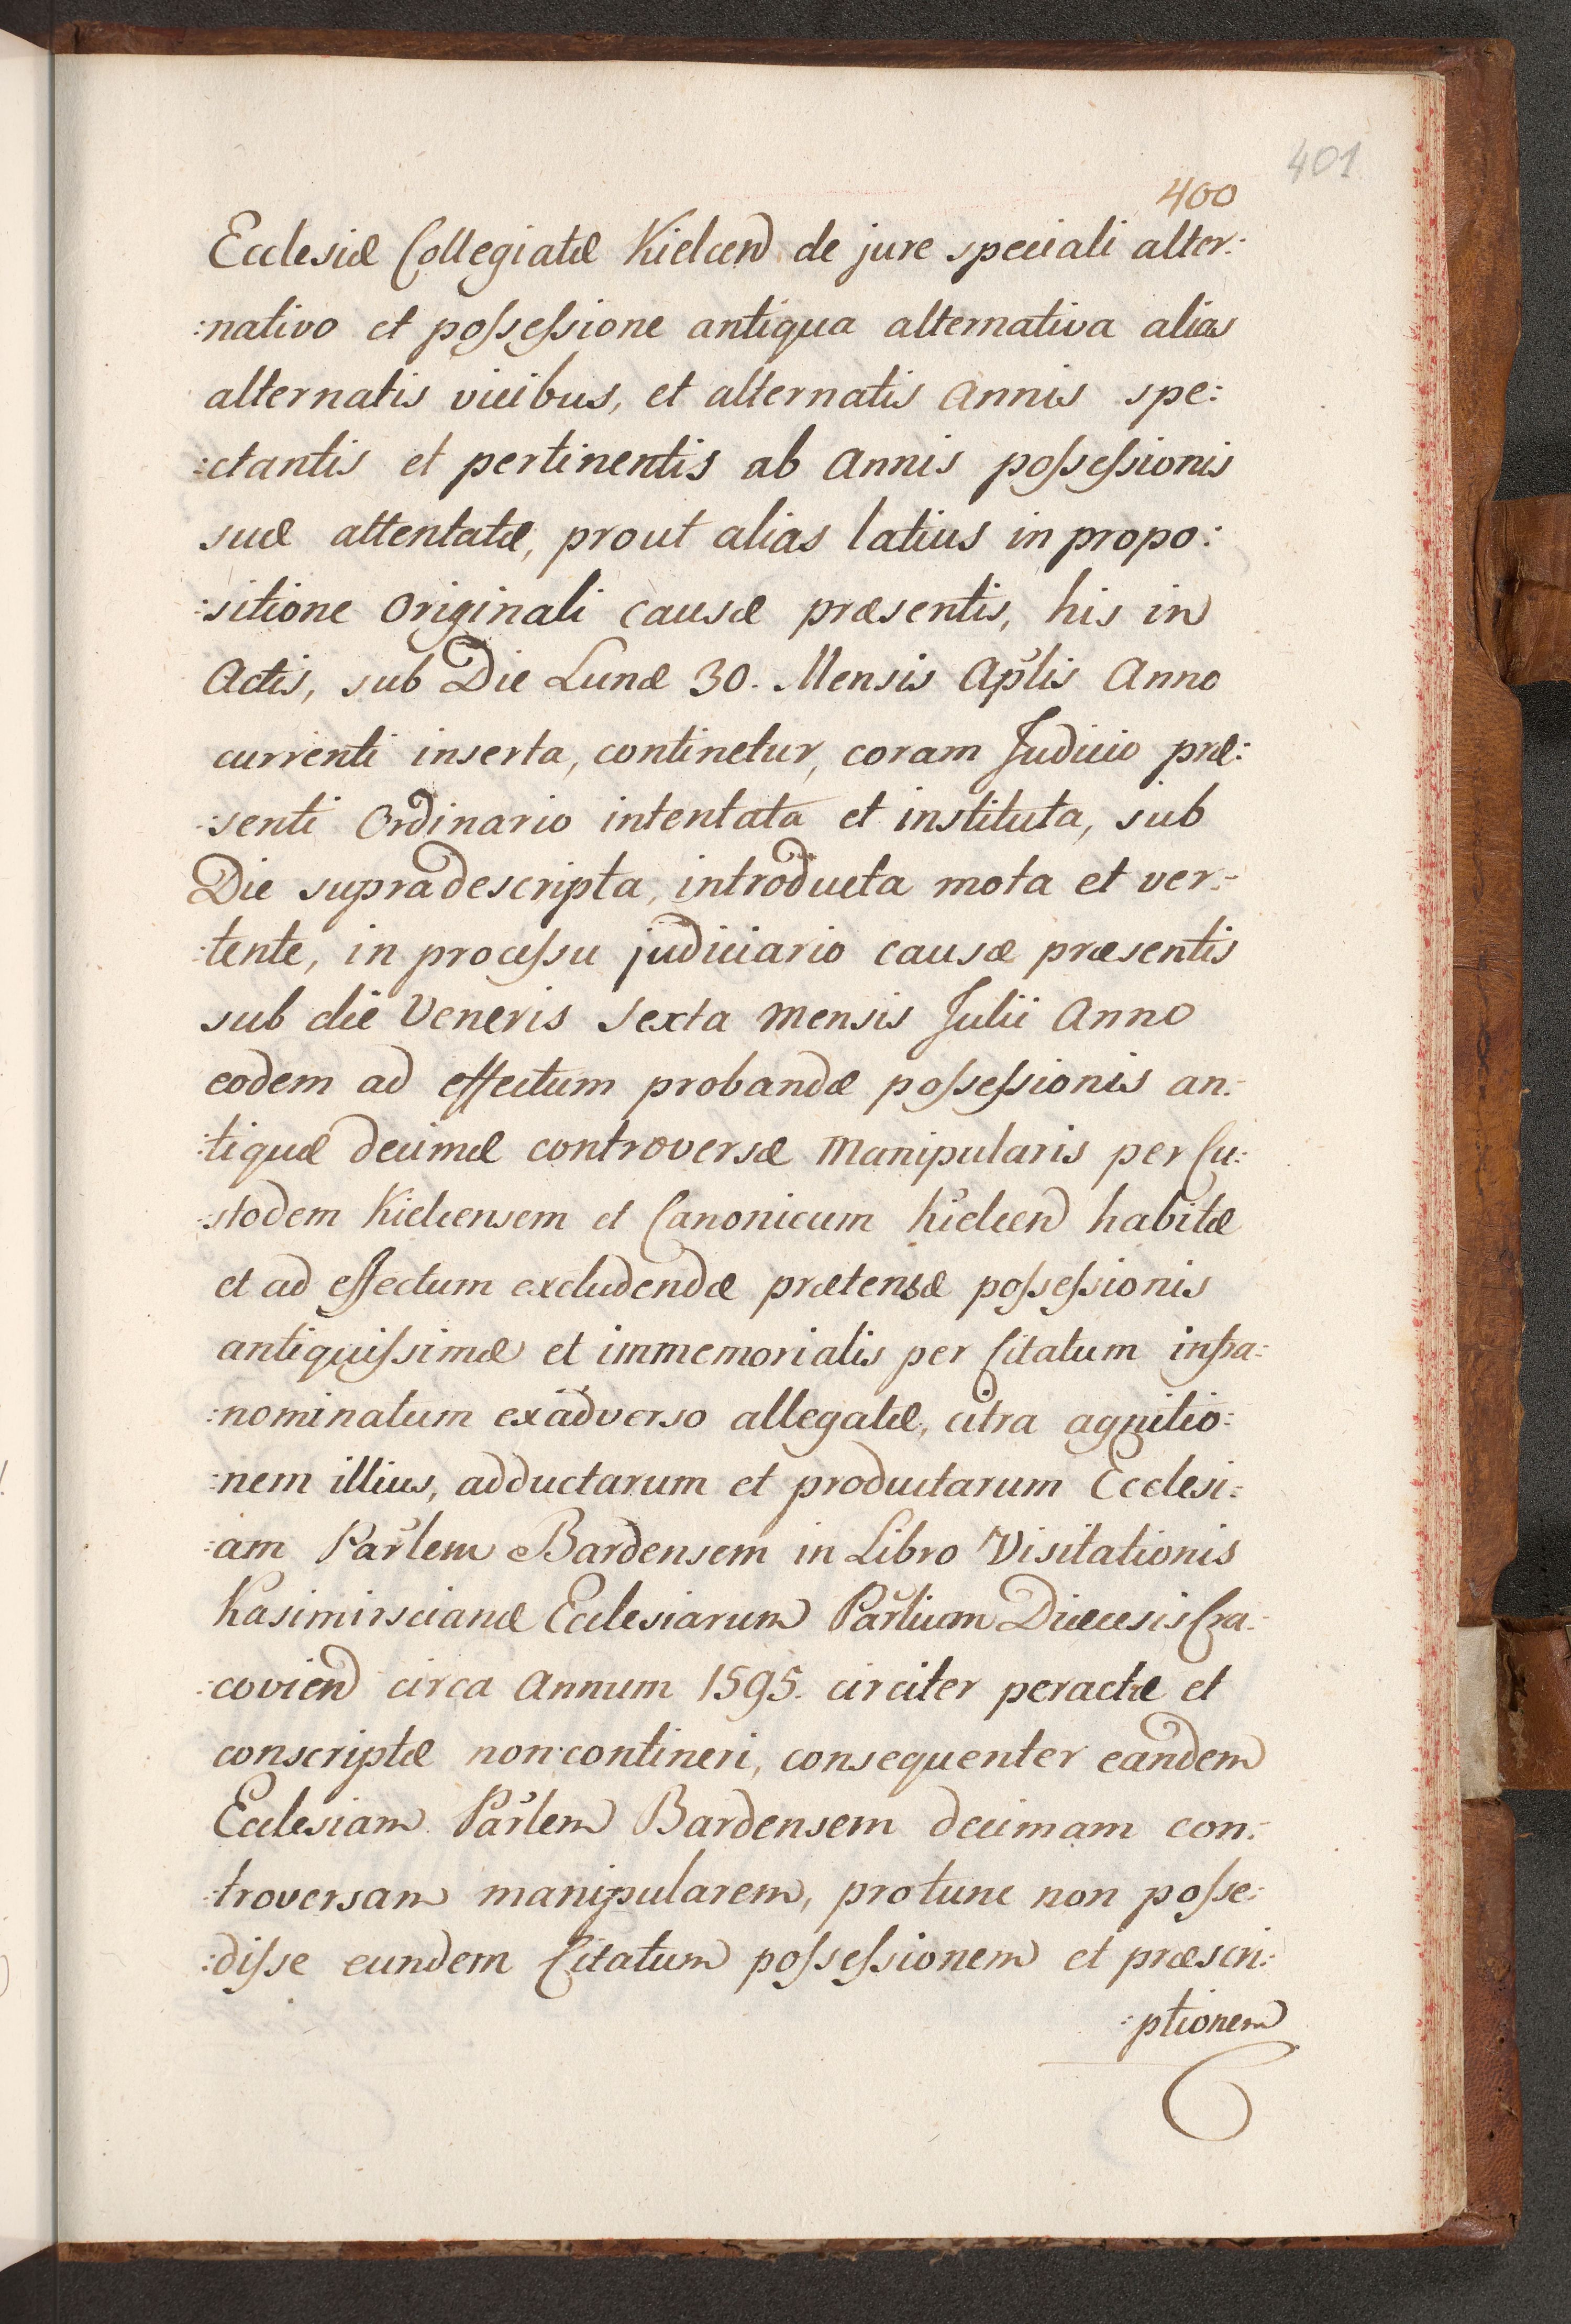 401
400
Ecclesiæ Collegiatæ Kielcen de jure speciali alter:
:nativo et possessione antiqua alternativa alias
alternatis vicibus, et alternatis Annis spe:
:ctantis et pertinentis ab Annis possessionis
suæ attentatæ, prout alias latius in propo:
:sitione Originali Causæ præsentis, his in
Actis, sub Die Lunæ 30. Mensis Aplis Anno
currenti inserta, continetur, coram Judicio præ:
:senti Ordinario intentata et instituta, sub
Die supradescripta, introducta mota et ver:
:tente, in processu judiciario causæ præsentis
sub die Veneris Sexta Mensis Julii Anno
eodem ad effectum probandæ possessionis an:
:tiquæ decimæ controversæ Manipularis per Cu:
:stodem Kielcensem et Canonicum Kielcen habitæ
et ad effectum excludendæ prætensæ possessionis
antiquissimæ et immemorialis per Citatum infra:
:nominatum exadverso allegatæ, citra agnitio:
:nem illius, adductarum et productarum Ecclesi:
:am Parlem Bardensem in Libro Visitationis
Kasimirscianæ Ecclesiarum Parlium Diæcesis Cra:
:covien circa Annum 1595. circiter peractæ et
conscriptæ non contineri, consequenter eandem
Ecclesiam Parlem Bardensem decimam con:
:troversam manipularem, protunc non posse:
:disse eundem Citatum possessionem et præscri:
:ptionem